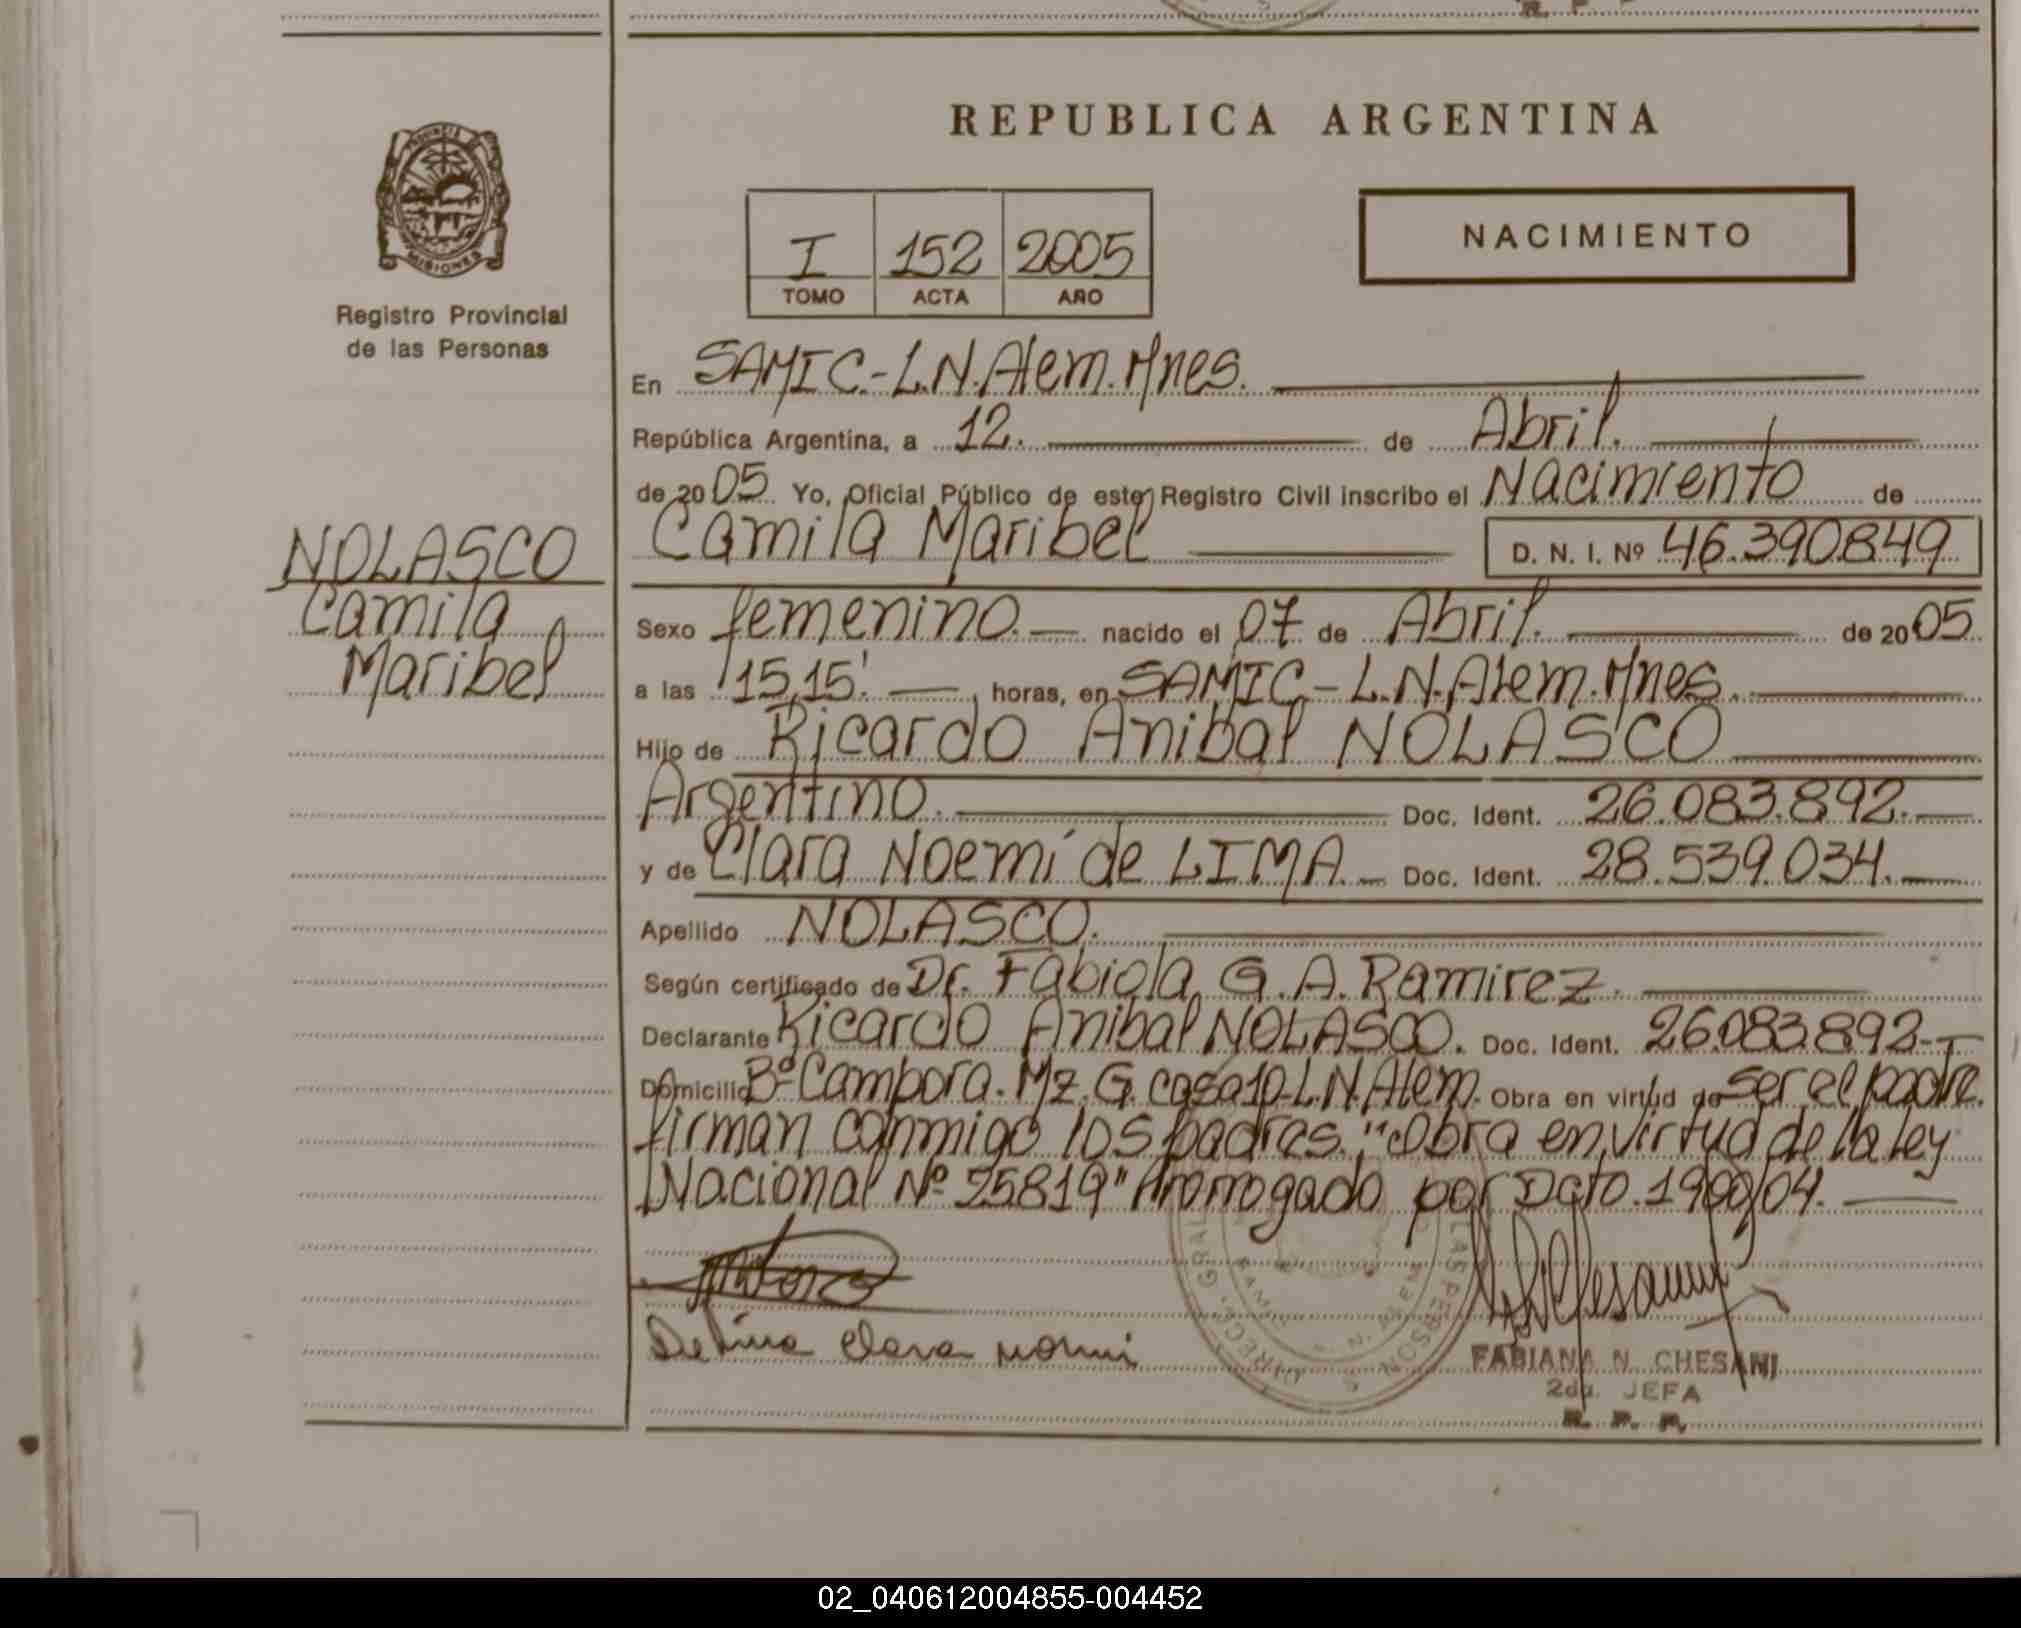 REPUBLICA ARGENTINA
PROVINCIA
MISIONES
Registro Provincial
de las Personas
I 152 2005
TOMO ACTA AÑO
NACIMIENTO
En SAMIC.-L.N.Alem.Mnes.
República Argentina, a 12. de Abril.
de 2005 Yo, Oficial Público de este Registro Civil inscribo el Nacimiento de
Camila Maribel D. N. I. Nº 46.390.849
NOLASCO
Camila
Maribel
Sexo femenino. nacido el 07 de Abril. de 2005
a las 15,15'. horas, en SAMIC-L.N.Alem.Mnes.
Hijo de Ricardo Anibal NOLASCO
Argentino. Doc. Ident. 26.083.892.
y de Clara Noemí de LIMA. Doc. Ident. 28.539.034.
Apellido NOLASCO.
Según certificado de Dr. Fabiola G.A. Ramirez.
Declarante Ricardo Anibal NOLASCO. Doc. Ident. 26.083.892.
Domicilio Bº Campora. Mz. G. casa 10-L.N.Alem. Obra en virtud de ser el padre.
firman conmigo los padres. "Obra en virtud de la ley
Nacional Nº 25819" Prorrogado por Dcto. 1900/04.
De Lima Clara Noemi
FABIANA N. CHESANI
2da. JEFA
R. P. P.
02_040612004855-004452